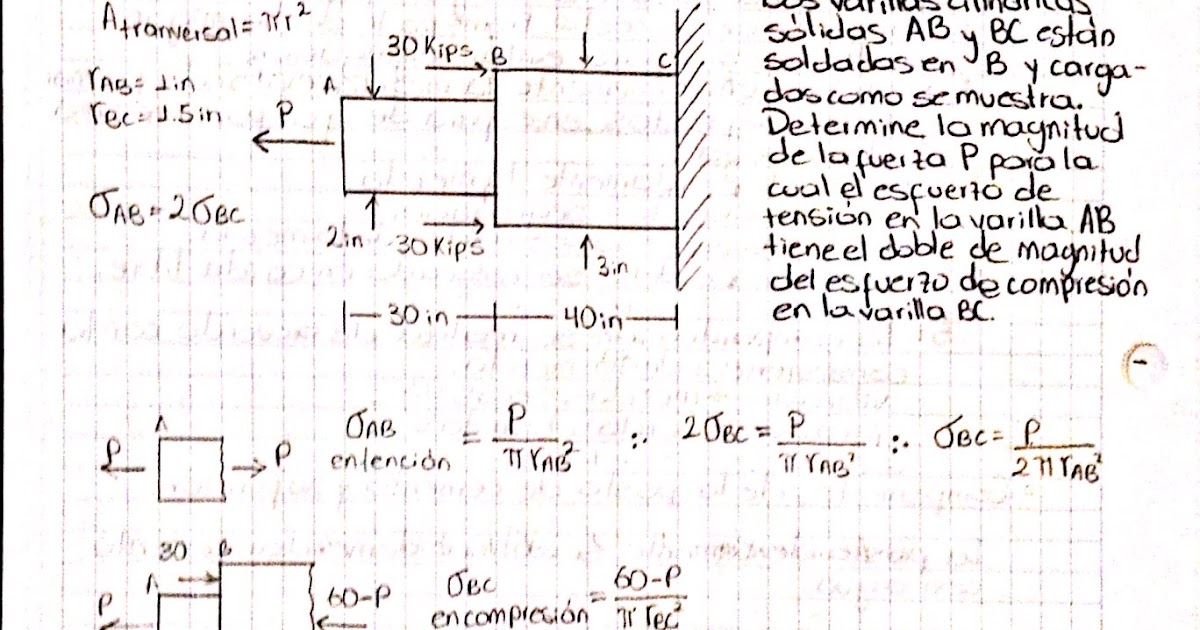 Atranversal = πr²
rAB = 1in
rBC = 1.5in
σAB = 2σBC
30 Kips
A
B
C
P
2in
30 Kips
3in
30 in
40in
Dos varillas cilíndricas
sólidas AB y BC están
soldadas en B y carga-
dos como se muestra.
Determine la magnitud
de la fuerza P para la
cual el esfuerzo de
tensión en la varilla AB
tiene el doble de magnitud
del esfuerzo de compresión
en la varilla BC.
A
P
P
σAB entención = P / πrAB² ∴ 2σBC = P / πrAB² ∴ σBC = P / 2πrAB²
30
B
A
P
60-P
σBC en compresión = 60-P / πrBC²